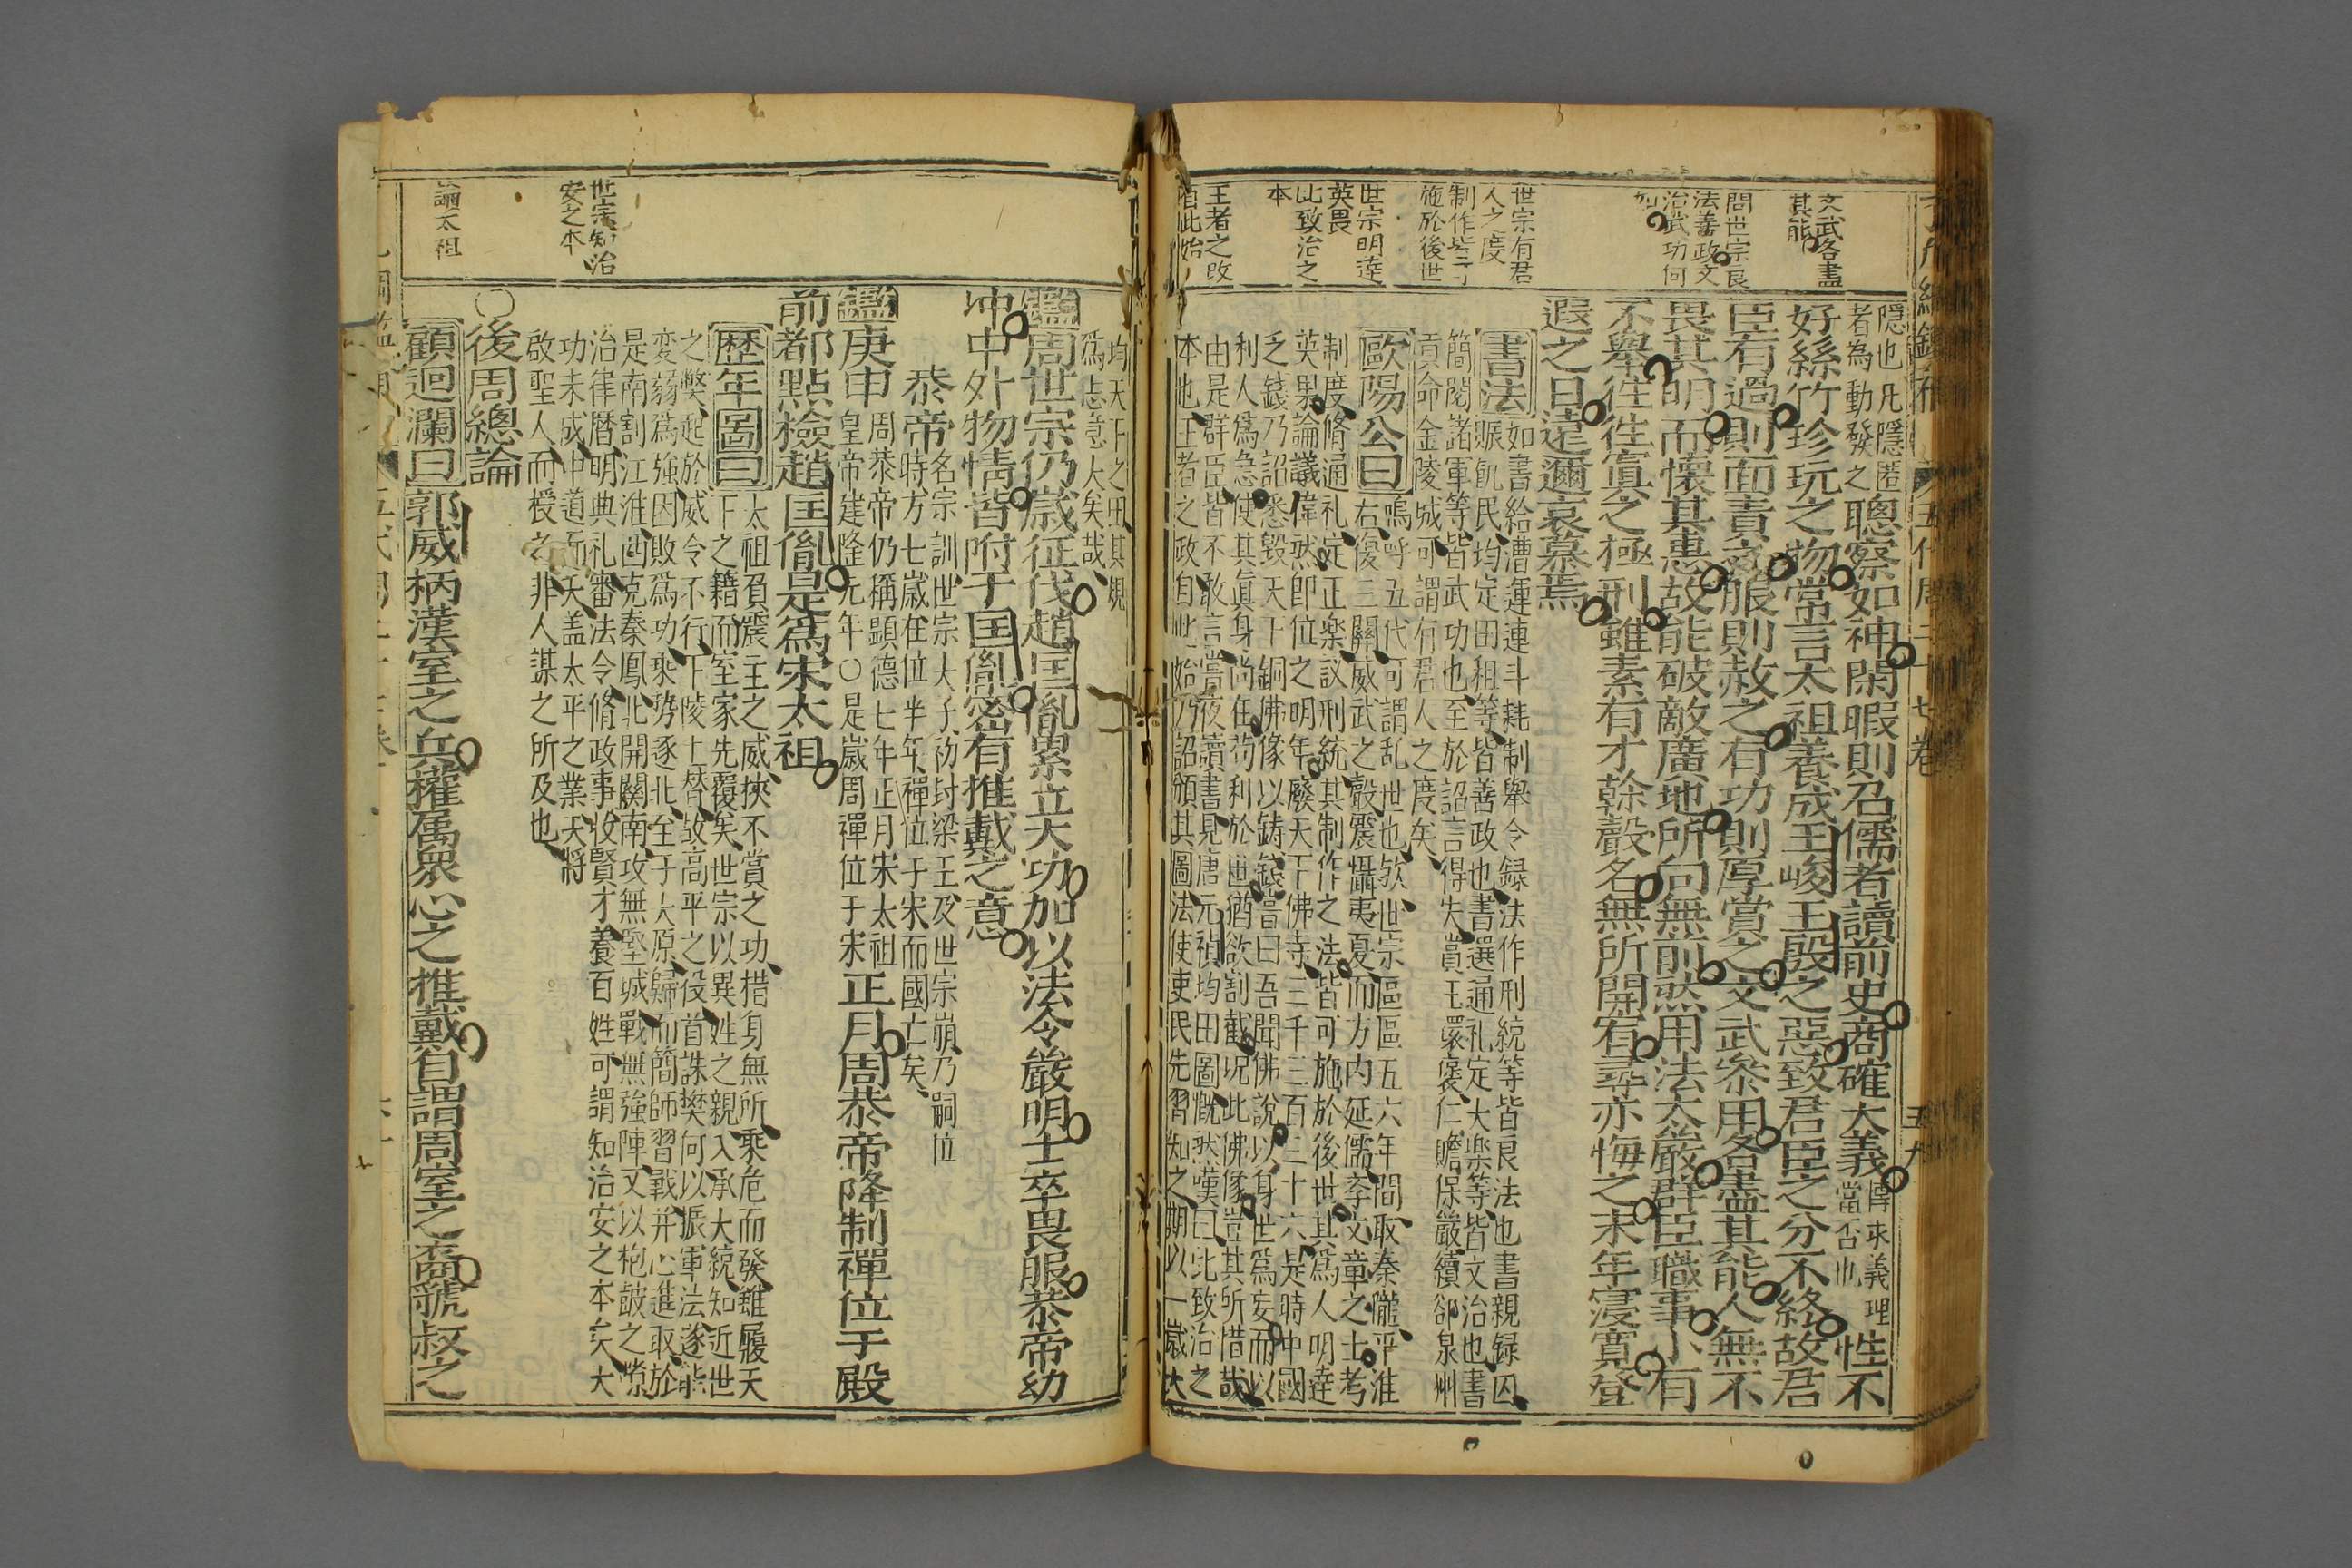 文武各盡
其能
問世宗良
法善政文
治武功何
如
世宗有君
人之度
制作皆可
施於後世
世宗明達
英畏
比致治之
本
王者之政
自此始
隱也凡隱匿
者為動發之
聰察如神閑暇則召儒者讀前史商確大義
傳求義理
當否也
性不
好絲竹珍玩之物常言太祖養成王峻王殷之惡致君臣之分不終故君
臣有過則面責之服則赦之有功則厚賞之文武參用各盡其能人無不
畏其明而懷其惠故能破敵廣地所向無前然用法太嚴群臣職事小有
不舉往往寘之極刑雖素有才幹聲名無所開宥尋亦悔之末年寖寬登
遐之日遠邇哀慕焉
書法
如書給漕運連斗耗制舉令録法作刑統等皆良法也書親録囚
賑飢民均定田租等皆善政也書選通礼定大楽等皆文治也書
簡閱諸軍等皆武功也至於詔言得失賞王環褒仁贍保嚴續卻泉州
貢命金陵城可謂有君人之度矣
歐陽公曰
嗚呼五代可謂乱世也欤世宗區區五六年間取秦隴平淮
右復三關威武之聲震懾夷夏而方内延儒李文章之士考
制度脩通礼定正楽議刑統其制作之法皆可施於後世其爲人明達
英果論議偉然即位之明年廢天下佛寺三千三百三十六是時中國
乏錢乃詔悉毀天下銅佛像以鋳錢嘗曰吾聞佛說以身世爲妄而以
利人爲急使其眞身尚在苟利於世猶欲割截况此佛像豈其所惜哉
由是群臣皆不敢言嘗夜讀書見唐元稹均田圖慨然嘆曰此致治之
本也王者之政自此始乃詔頒其圖法使吏民先習知之期以一歲大
均天下之田其規
爲志意大矣哉
世宗知治
安之本
論太祖
鑑周世宗仍歲征伐趙匡胤累立大功加以法令嚴明士卒畏服恭帝幼
冲中外物情皆附于匡胤密有推戴之意
恭帝
名宗訓世宗大子初封梁王及世宗崩乃嗣位
時方七歲在位半年禪位于宋而國亡矣
鑑庚申
周恭帝仍稱顯德七年正月宋太祖
皇帝建隆元年○是歲周禪位于宋
正月周恭帝降制禪位于殿
前都點檢趙匡胤是爲宋太祖
歷年圖曰
太祖負震主之威挾不賞之功措身無所乘危而發雖履天
下之籍而室家先覆矣世宗以異姓之親入承大統知近世
之弊起於威令不行下陵上替故高平之役首誅樊何以振軍法遂能
変弱爲強因敗爲功乘勢逐北至于大原歸而簡師習戰并心進取於
是南割江淮西克秦鳳北開關南攻無堅城戰無強陣又以枹鼓之隙
治律暦明典礼審法令脩政事收賢才養百姓可謂知治安之本矣大
功未成中道而夭盖太平之業天將
啟聖人而授之非人謀之所及也
○後周總論
顧迴瀾曰郭威柄漢室之兵權属衆心之推戴自謂周室之裔虢叔之